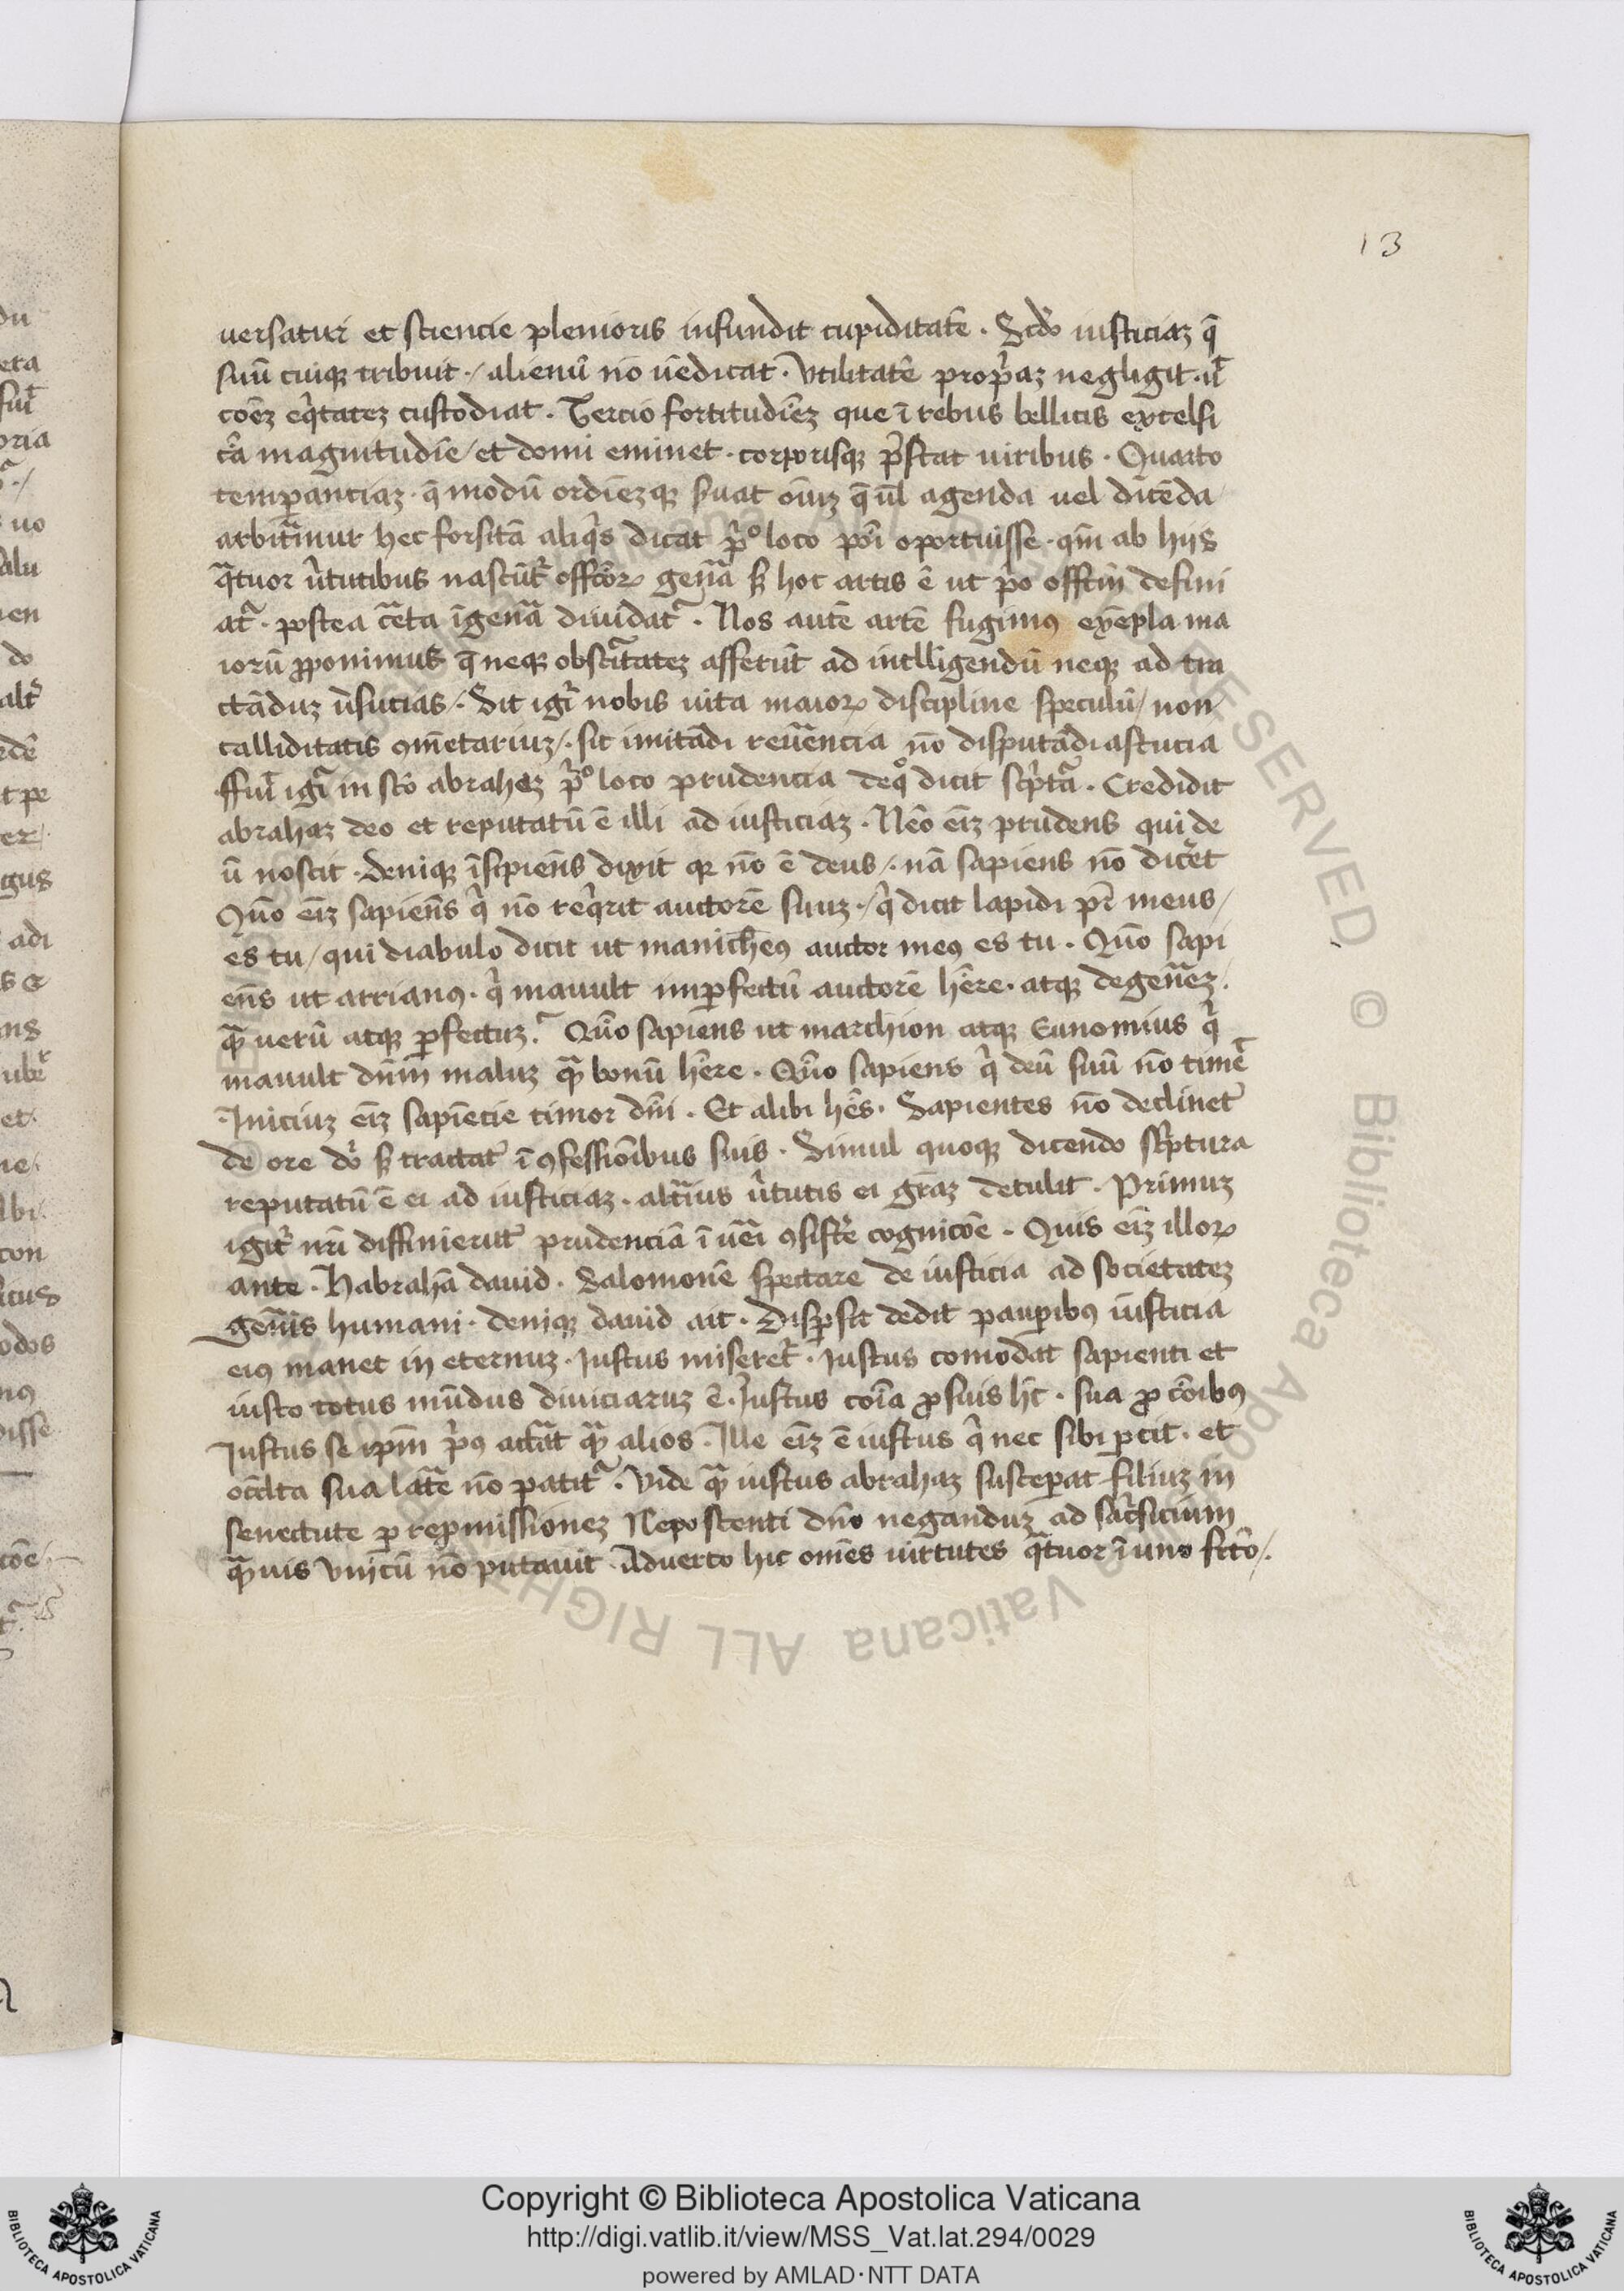 13
uersatur et sciencie plenioris infundit cupiditatē . Scđo iusticiaz q̄
suū cuiqȝ tribuit ./ alienū nō uēdicat . Vtilitatē propͥaz negligit . ut̄
cōēz eqͥtatez custodiat . Tercio fortitudīez que ī rebus bellicis excelsi
aĩ magnitudīe / et domi eminet . corporisqȝ pͤstat uiribus . Quarto
temꝑantiaz . q̄ modū ordīezqȝ ẜuat oīuz q̄ ul̄ agenda uel dicēda
arbitᷓmur hec forsitā aliqͥs dicat pͥº loco poī oportuisse . qm̄ ab hijs
qᷓtuor ūtutibus nascūtͬ officioꝝ genͣa ẜ hoc artis ē ut pͥo officiū defini
atᷓ . postea cᷓeta ī genͣa diuidatᷓ . Nos autē artē fugimꝰ exēpla ma
iorū ꝓponimus q̄ neqȝ obscᷓitatez afferūt ad intelligendū neqȝ ad tra
ctāduz ūsucias ./ Sit igͥ nobis uita maioꝝ discipline speculū / non
calliditatis ꝯm̄etariuz ./ sit imitādi reuͣencia nō disputādi astucia
ffuit̄ igͥ in scō abrahaz pͥº loco prudencia de qº dicit scpͥtᷓa . Credidit
abrahaz deo et reputatū ē illi ad iusticiaz . Nēo eīz prudens qui de
ū noscit . Deniqȝ īsipiēns dixit qꝛ nō ē deus ./ nā sapiens nō dicͤet
Quō eīz sapiēns qͥ nō reqͥrit auctorē suuz ./ qͥ dicit lapidi pr̄ meus /
es tu / qui diabulo dicit ut manicheꝰ auctor meꝰ es tu . Quō sapi
ens ut arrianꝰ . qͥ mauult imꝑfectū auctorē hēre . atqȝ degenͣez /
qᷓ uerū atqȝ ꝑfectuz ? Quō sapiens ut marchion atqȝ Eunomius qͥ
mauult dn̄m maluz qᷓ bonū hēre . Quō sapiens qͥ deū suū nō timēt
Iniciuz eīz sapiēcie timor dn̄i . Et alibi hēs . Sapientes nō declinētͬ
de ore dn̄i ẜ tractātͬ ī ꝯfessiōibus suis . Simul quoqȝ dicendo scͥptura
reputatū ē ei ad iusticiaz . altͤius ūtutis ei gr̄az detulit . Primuz
igitͬ nr̄i diffinierūt prudenciā ī uēi ꝯsistͤe cognicōe . Quis eīz illoꝝ
ante . Habrahā dauid . Salomonē spectare de iusticia ad societatez
genͤis humani . deniqȝ dauid ait . Disꝑsit dedit pauꝑibꝰ iusticia
eiꝰ manet in eternuz . Iustus miseretͬ . Iustus comodat sapienti et
iusto totus mūdus diuiciaruz ē . Iustus coīa ꝓ suis ht̄ . sua ꝓ cōibꝰ
Iustus se ipm̄ pͥꝰ accᷓat qᷓ alios . Ille eīz ē iustus qͥ nec sibi ꝑcit . et
occͣlta sua latͤe nō patitᷓ . Vide qᷓ iustus abrahaz susceꝑat filiuz in
senectute ꝑ repmissionez Nepo scenti dn̄o neganduz ad sacͥficium
qᷓuis vnicū nō putauit . Aduerto hic omēs uirtutes qᷓtuor ī uno fctō /.
Copyright © Biblioteca Apostolica Vaticana
http://digi.vatlib.it/view/MSS_Vat.lat.294/0029
powered by AMLAD·NTT DATA